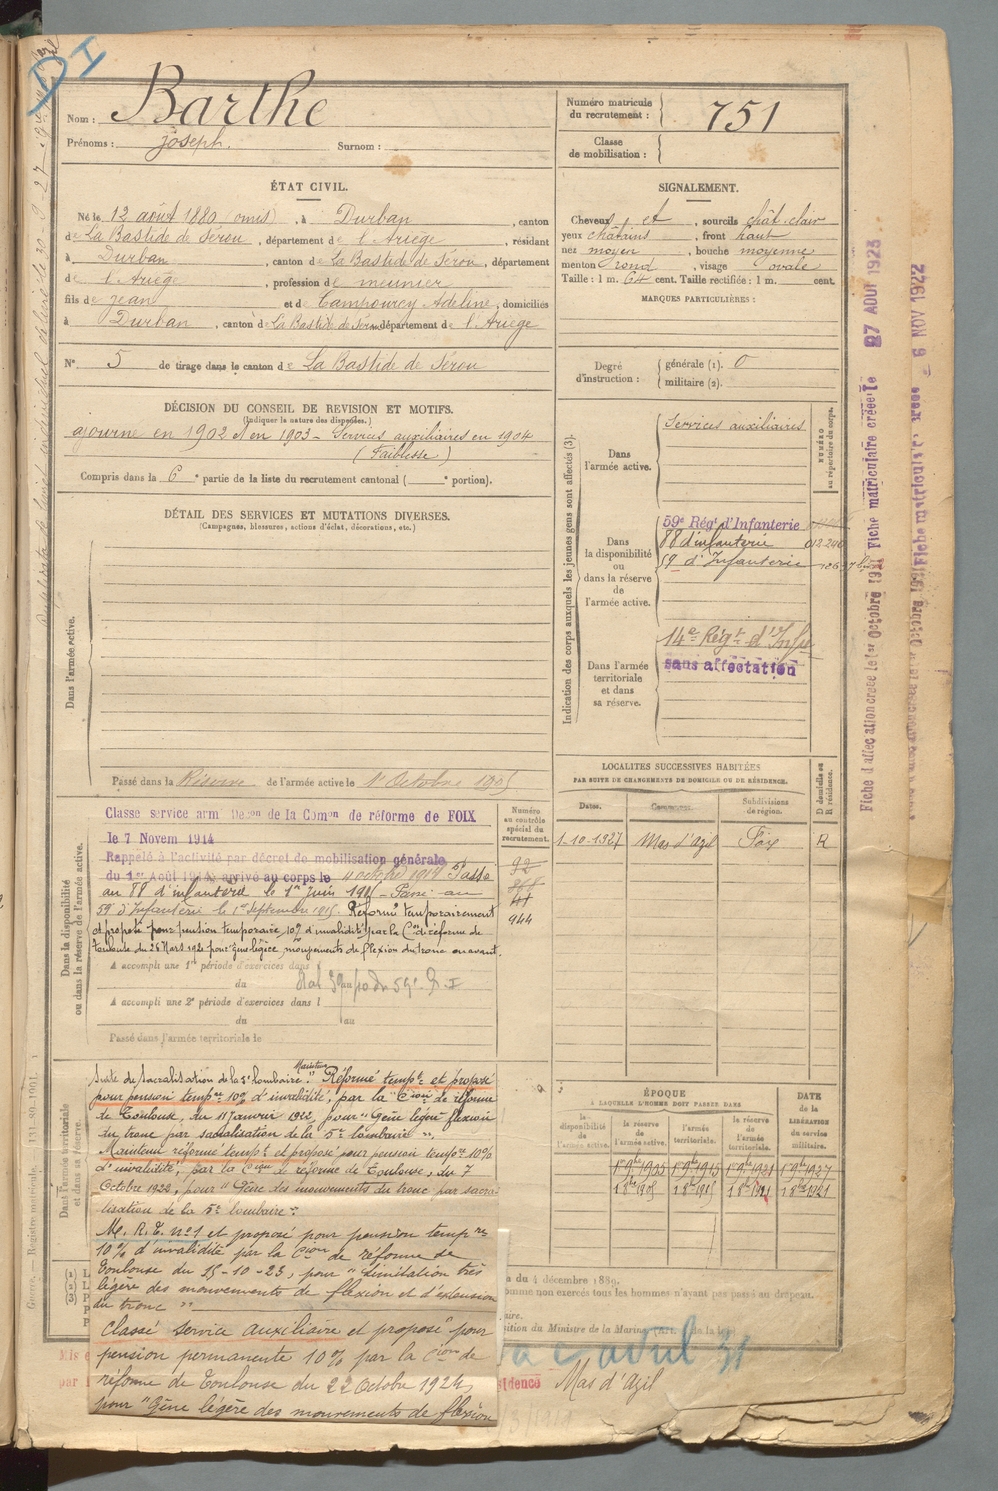 D I
Nom : Barthe
Prénoms : joseph. Surnom :
Numéro matricule du recrutement : 751
Classe de mobilisation :
ÉTAT CIVIL.
Né le 12 août 1880 (omis), à Durban, canton
de La Bastide de Sérou, département de l'Ariège, résidant
à Durban, canton de La Bastide de Sérou, département
de l'Ariège, profession de meunier
fils de jean et de Campourcy Adeline, domiciliés
à Durban, canton de La Bastide de Sérou département de l'Ariège
N° 5 de tirage dans le canton de La Bastide de Sérou
SIGNALEMENT.
Cheveux et, sourcils chât. clair
yeux châtains, front haut
nez moyen, bouche moyenne
menton rond, visage ovale
Taille : 1 m. 64 cent. Taille rectifiée : 1 m. cent.
MARQUES PARTICULIÈRES :
Degré d'instruction : générale (1). 0
militaire (2).
DÉCISION DU CONSEIL DE REVISION ET MOTIFS.
(Indiquer la nature des dispenses.)
ajourné en 1902 et en 1903 - Services auxiliaires en 1904
(Faiblesse)
Compris dans la 6e partie de la liste du recrutement cantonal ( e portion).
DÉTAIL DES SERVICES ET MUTATIONS DIVERSES.
(Campagnes, blessures, actions d'éclat, décorations, etc.)
Dans l'armée active.
Passé dans la Réserve de l'armée active le 1er Octobre 1905
Indication des corps auxquels les jeunes gens sont affectés (3).
NUMÉRO au répertoire du corps.
Dans l'armée active.
Services auxiliaires
Dans la disponibilité ou dans la réserve de l'armée active.
59e Régt d'Infanterie
88 d'infanterie 012240
59 d'Infanterie
Dans l'armée territoriale et dans sa réserve.
14e Régt d'Infie
sans affectation
LOCALITÉS SUCCESSIVES HABITÉES
PAR SUITE DE CHANGEMENTS DE DOMICILE OU DE RÉSIDENCE.
Dates. Communes. Subdivisions de région. D domicile ou R résidence.
1-10-1927 Mas d'Azil Foix R
Dans la disponibilité ou dans la réserve de l'armée active.
Classé service armé Décon de la Comon de réforme de FOIX
le 7 Novem 1914
Rappelé à l'activité par décret de mobilisation générale
du 1er Août 1914 arrivé au corps le 11 octobre 1914 Passé
au 88 d'infanterie le 1er Juin 1915 - Passé au
59 d'Infanterie le 1er septembre 1915. Réformé temporairement
et proposé pour pension temporaire 10% d'invalidité par la Con de réforme de
Toulouse du 26 Mars 1920 pour gêne légère, mouvements de flexion du tronc en avant.
A accompli une 1re période d'exercices dans
du
A accompli une 2e période d'exercices dans l
du au
Passé dans l'armée territoriale le
Numéro au contrôle spécial du recrutement.
92
41
944
Dans l'armée territoriale et dans sa réserve.
Suite de Sacralisation de la 5e lombaire. Maintenu Réformé tempt et proposé
pour pension tempre 10% d'invalidité, par la Cion de réforme
de Toulouse, du 11 Janvier 1922, pour "Gêne légère flexion
du tronc par sacralisation de la 5e lombaire".
Maintenu réformé tempt et proposé pour pension tempre 10%
d'invalidité, par la Cion de réforme de Toulouse, du 7
Octobre 1922, pour "Gêne des mouvements du tronc par sacra-
lisation de la 5e lombaire".
Me. R. T. n°1 et proposé pour pension tempre
10% d'invalidité par la Cion de réforme de
Toulouse du 15-10-23, pour "Limitation très
légère des mouvements de flexion et d'extension
du tronc"
Classé service auxiliaire et proposé pour
pension permanente 10% par la Cion de
réforme de Toulouse du 22 Octobre 1924,
pour "Gêne légère des mouvements de flexion
ÉPOQUE
À LAQUELLE L'HOMME DOIT PASSER DANS
la disponibilité de l'armée active. la réserve de l'armée active. l'armée territoriale. la réserve de l'armée territoriale. DATE de la LIBÉRATION du service militaire.
1er 9bre 1905 1er 9bre 1915 1er 9bre 1921 1er 9bre 1927
1 8bre 1905 1 8bre 1915 1 8bre 1921 1 8bre 1927
du 4 décembre 1889.
comme non exercés tous les hommes n'ayant pas passé au drapeau.
avril 31
résidence Mas d'Azil
Fiche d'affectation créée le 1er Octobre 1921 Fiche matriculaire créée le 27 AOUT 1923
6 NOV 1922
Guerre. — Registre matricule. 131-89-1901.